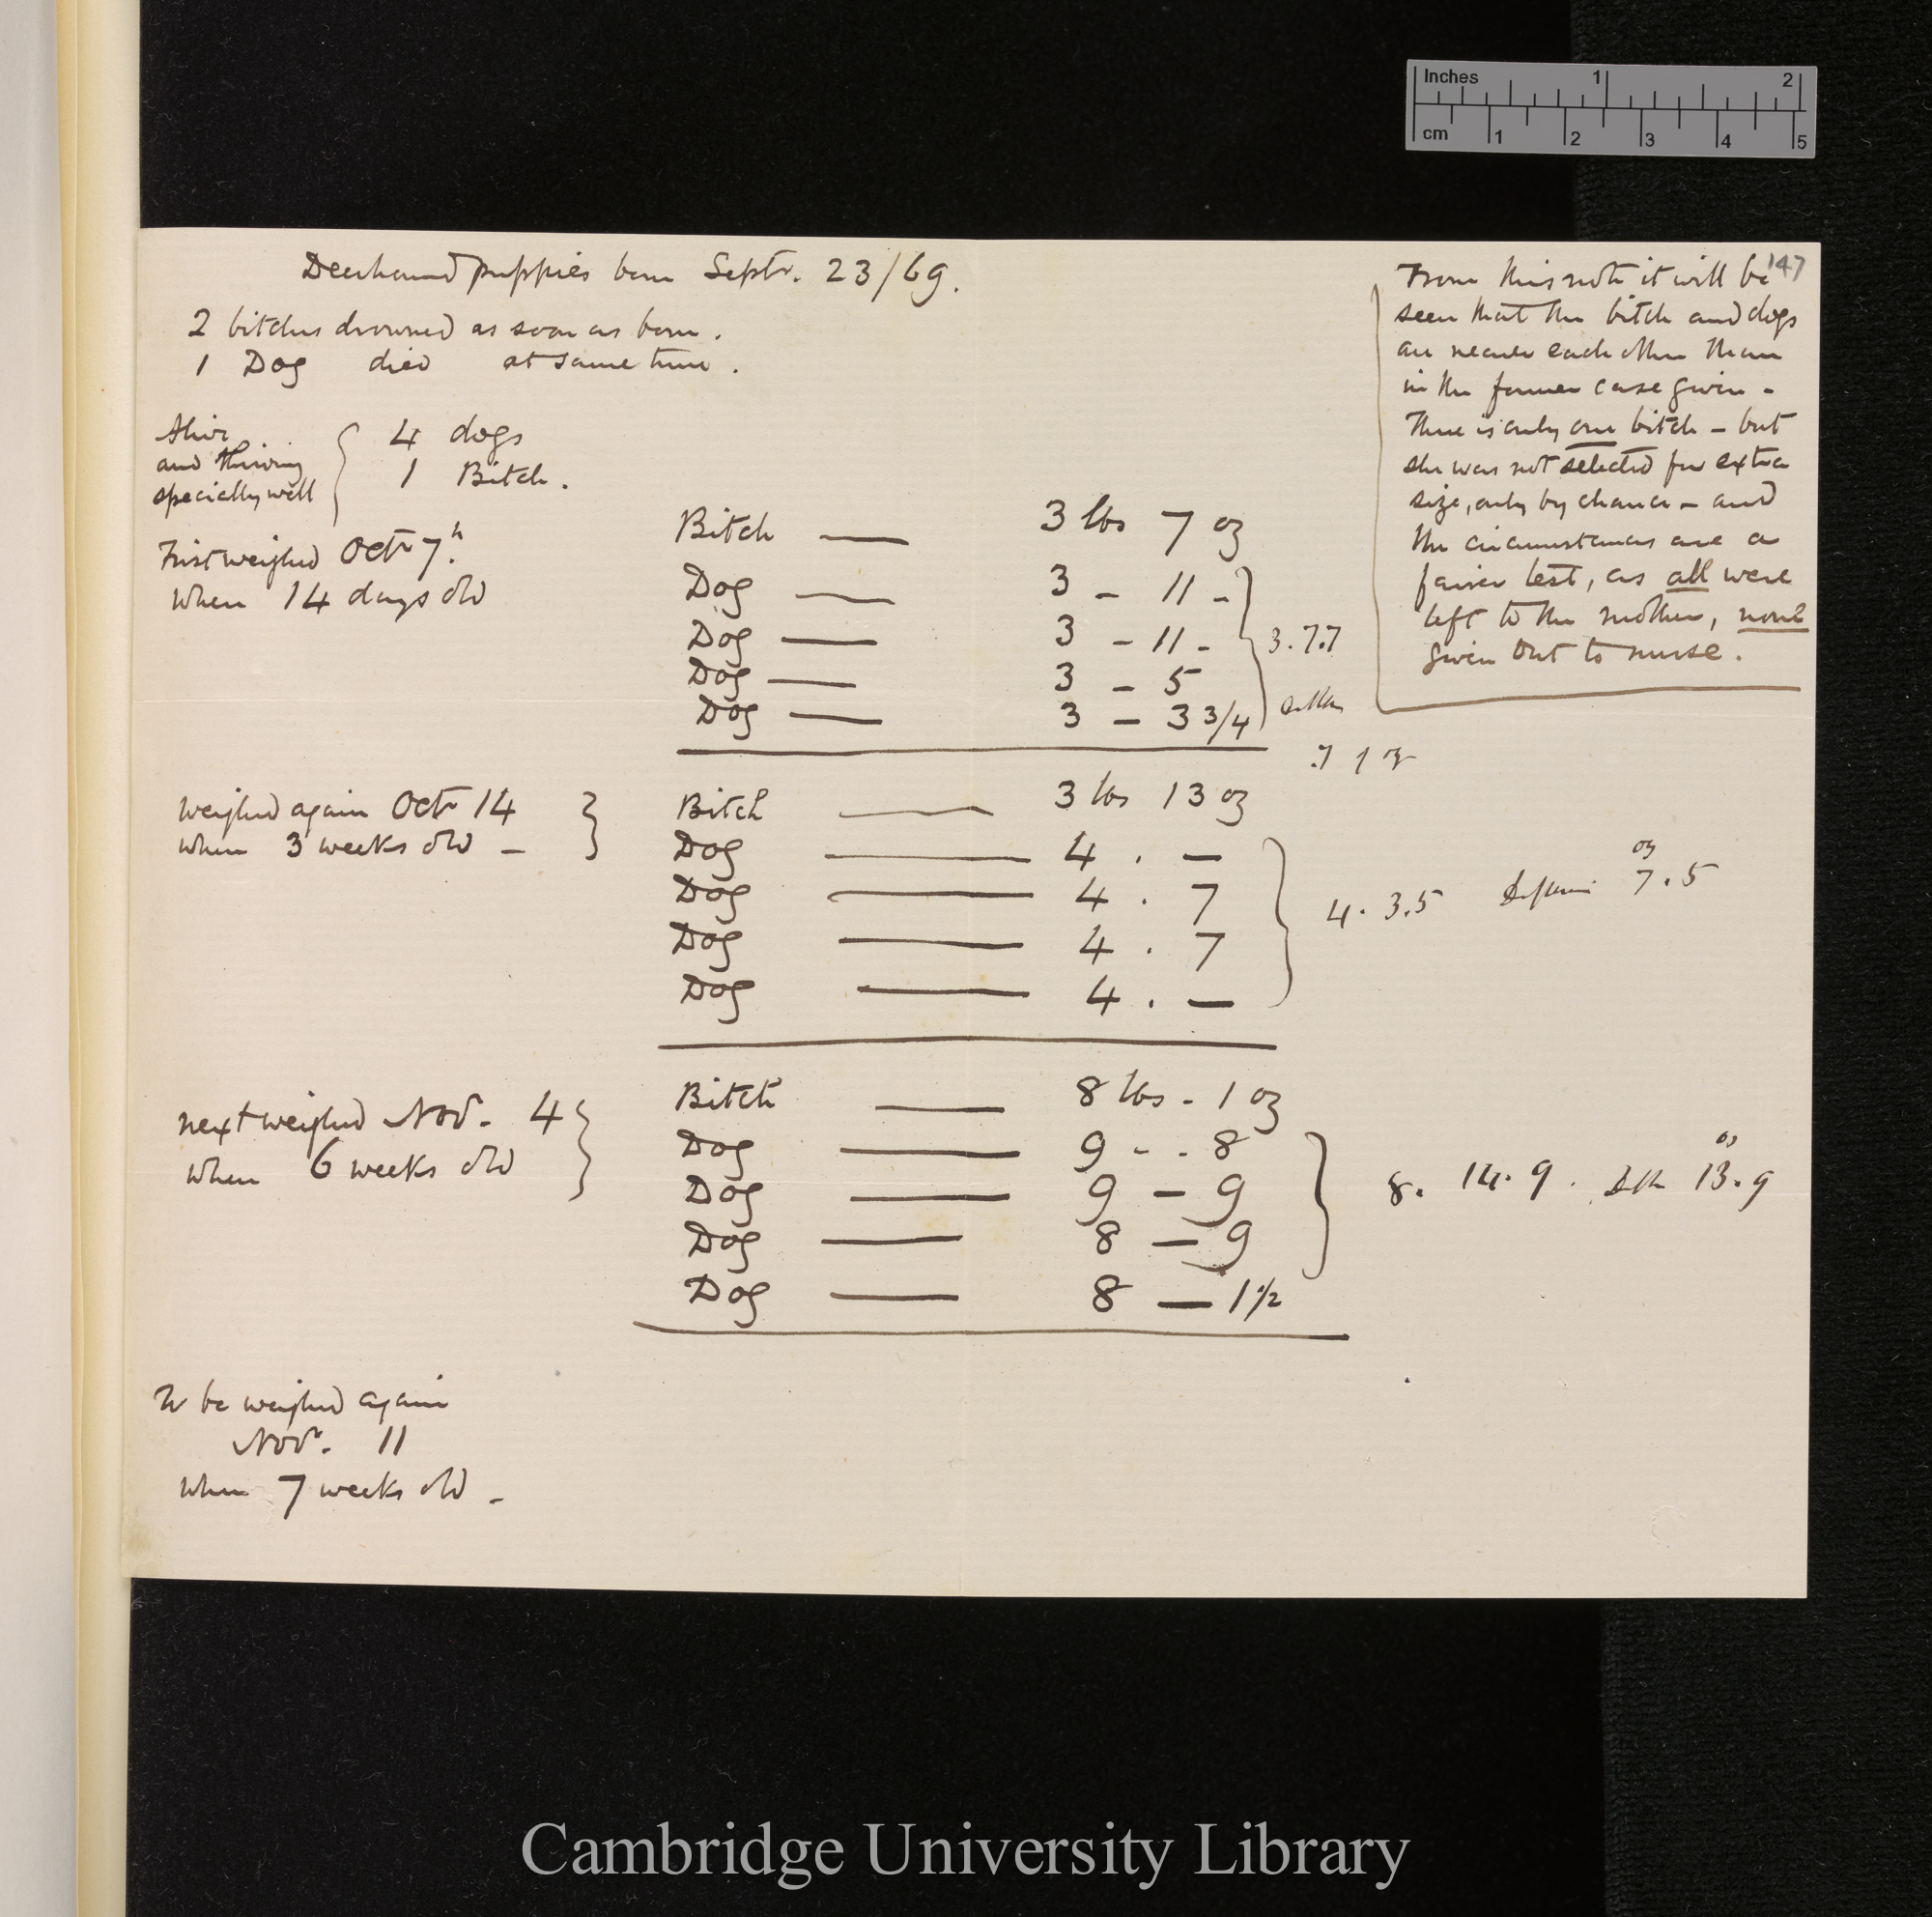 Inches 1 2
cm 1 2 3 4 5
147
Deerhound puppies born Septr. 23/69.
2 bitches drowned as soon as born.
1 Dog died at same time.
Alive
and thriving
specially well
4 dogs
1 Bitch.
First weighed Octr 7th.
when 14 days old
Bitch — 3 lbs 7 oz
Dog — 3 - 11 -
Dog — 3 - 11 -
Dog — 3 - 5
Dog — 3 - 3 3/4
3.7.7
.7 1 oz
weighed again Octr 14
when 3 weeks old -
Bitch — 3 lbs 13 oz
Dog — 4 . —
Dog — 4 . 7
Dog — 4 . 7
Dog — 4 . —
4. 3.5
oz
7.5
next weighed Novr. 4
when 6 weeks old
Bitch — 8 lbs - 1 oz
Dog — 9 - - 8
Dog — 9 - 9
Dog — 8 — 9
Dog — 8 — 1 1/2
8. 14. 9.
oz
13.9
To be weighed again
Novr. 11
when 7 weeks old -
From this note it will be
seen that the bitch and dogs
are nearer each other than
in the former case given -
There is only one bitch - but
she was not selected for extra
size, only by chance - and
the circumstances are a
fairer test, as all were
left to the mother, none
given out to nurse.
Cambridge University Library